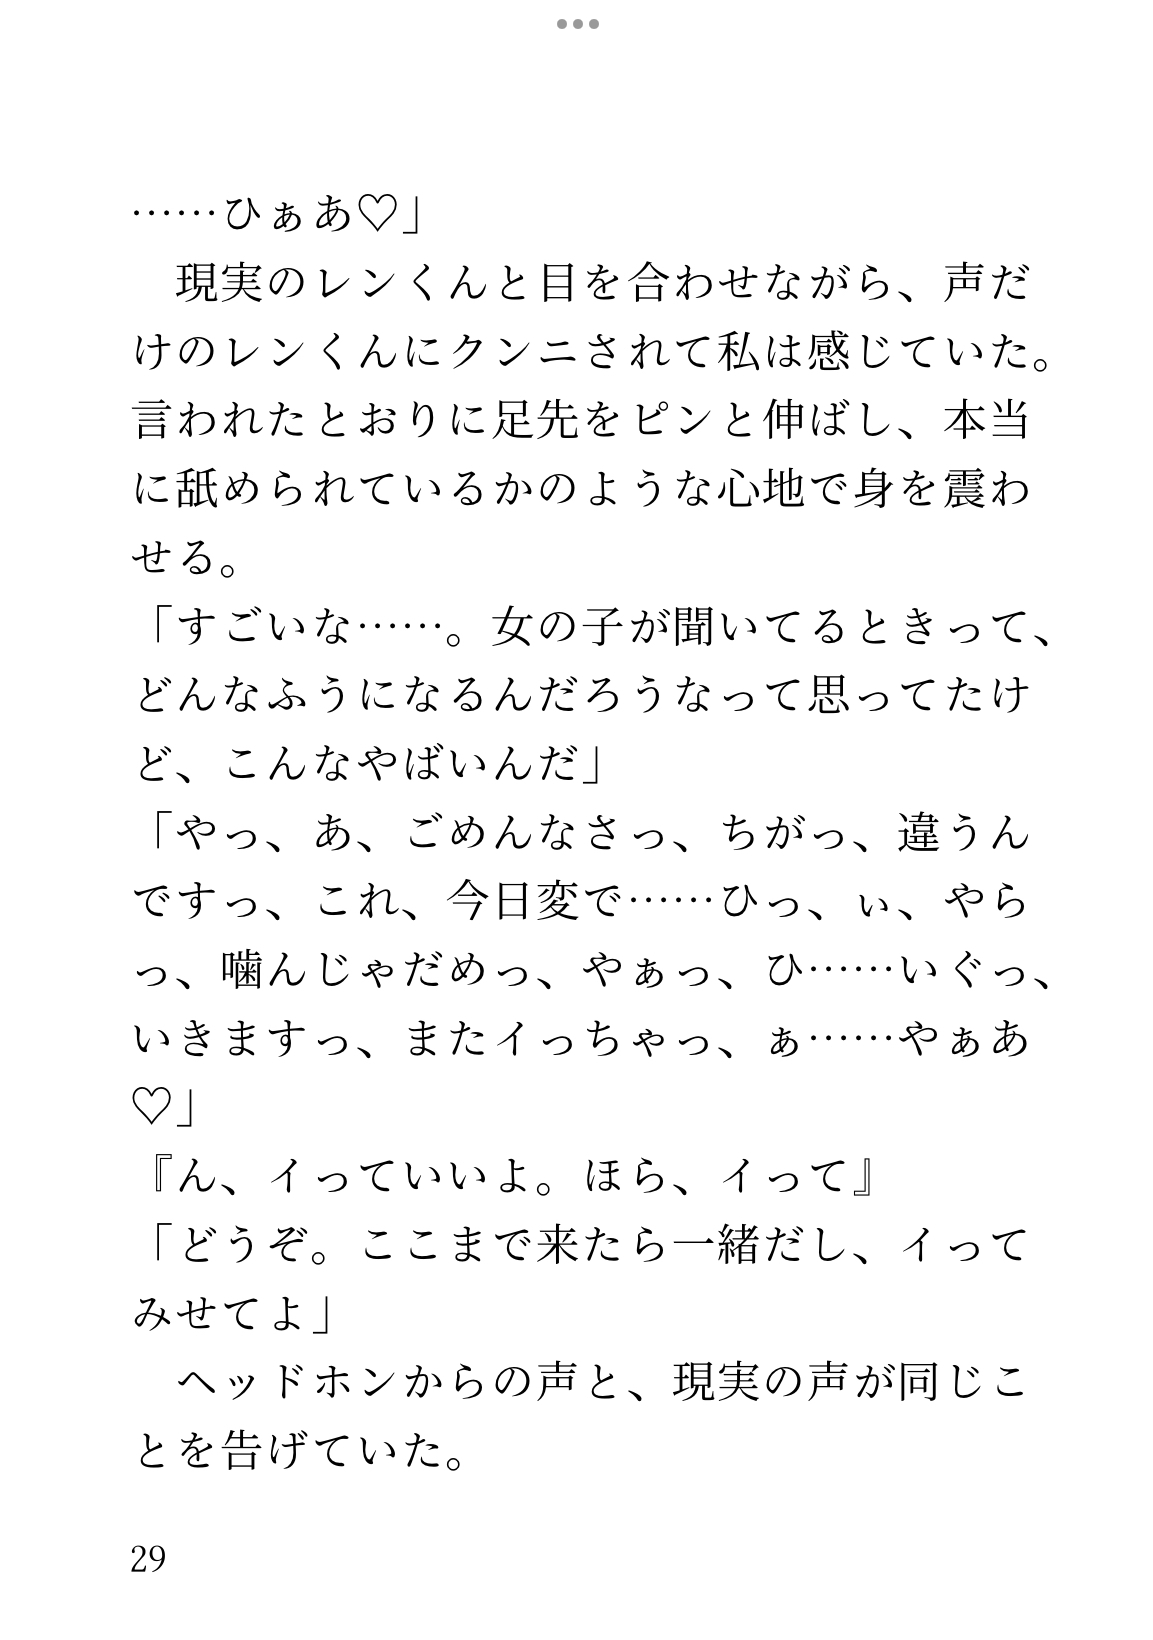 ……ひぁあ♡」
　現実のレンくんと目を合わせながら、声だ
けのレンくんにクンニされて私は感じていた。
言われたとおりに足先をピンと伸ばし、本当
に舐められているかのような心地で身を震わ
せる。
「すごいな……。女の子が聞いてるときって、
どんなふうになるんだろうなって思ってたけ
ど、こんなやばいんだ」
「やっ、あ、ごめんなさっ、ちがっ、違うん
ですっ、これ、今日変で……ひっ、ぃ、やら
っ、噛んじゃだめっ、やぁっ、ひ……いぐっ、
いきますっ、またイっちゃっ、ぁ……やぁあ
♡」
『ん、イっていいよ。ほら、イって』
「どうぞ。ここまで来たら一緒だし、イって
みせてよ」
　ヘッドホンからの声と、現実の声が同じこ
とを告げていた。
29